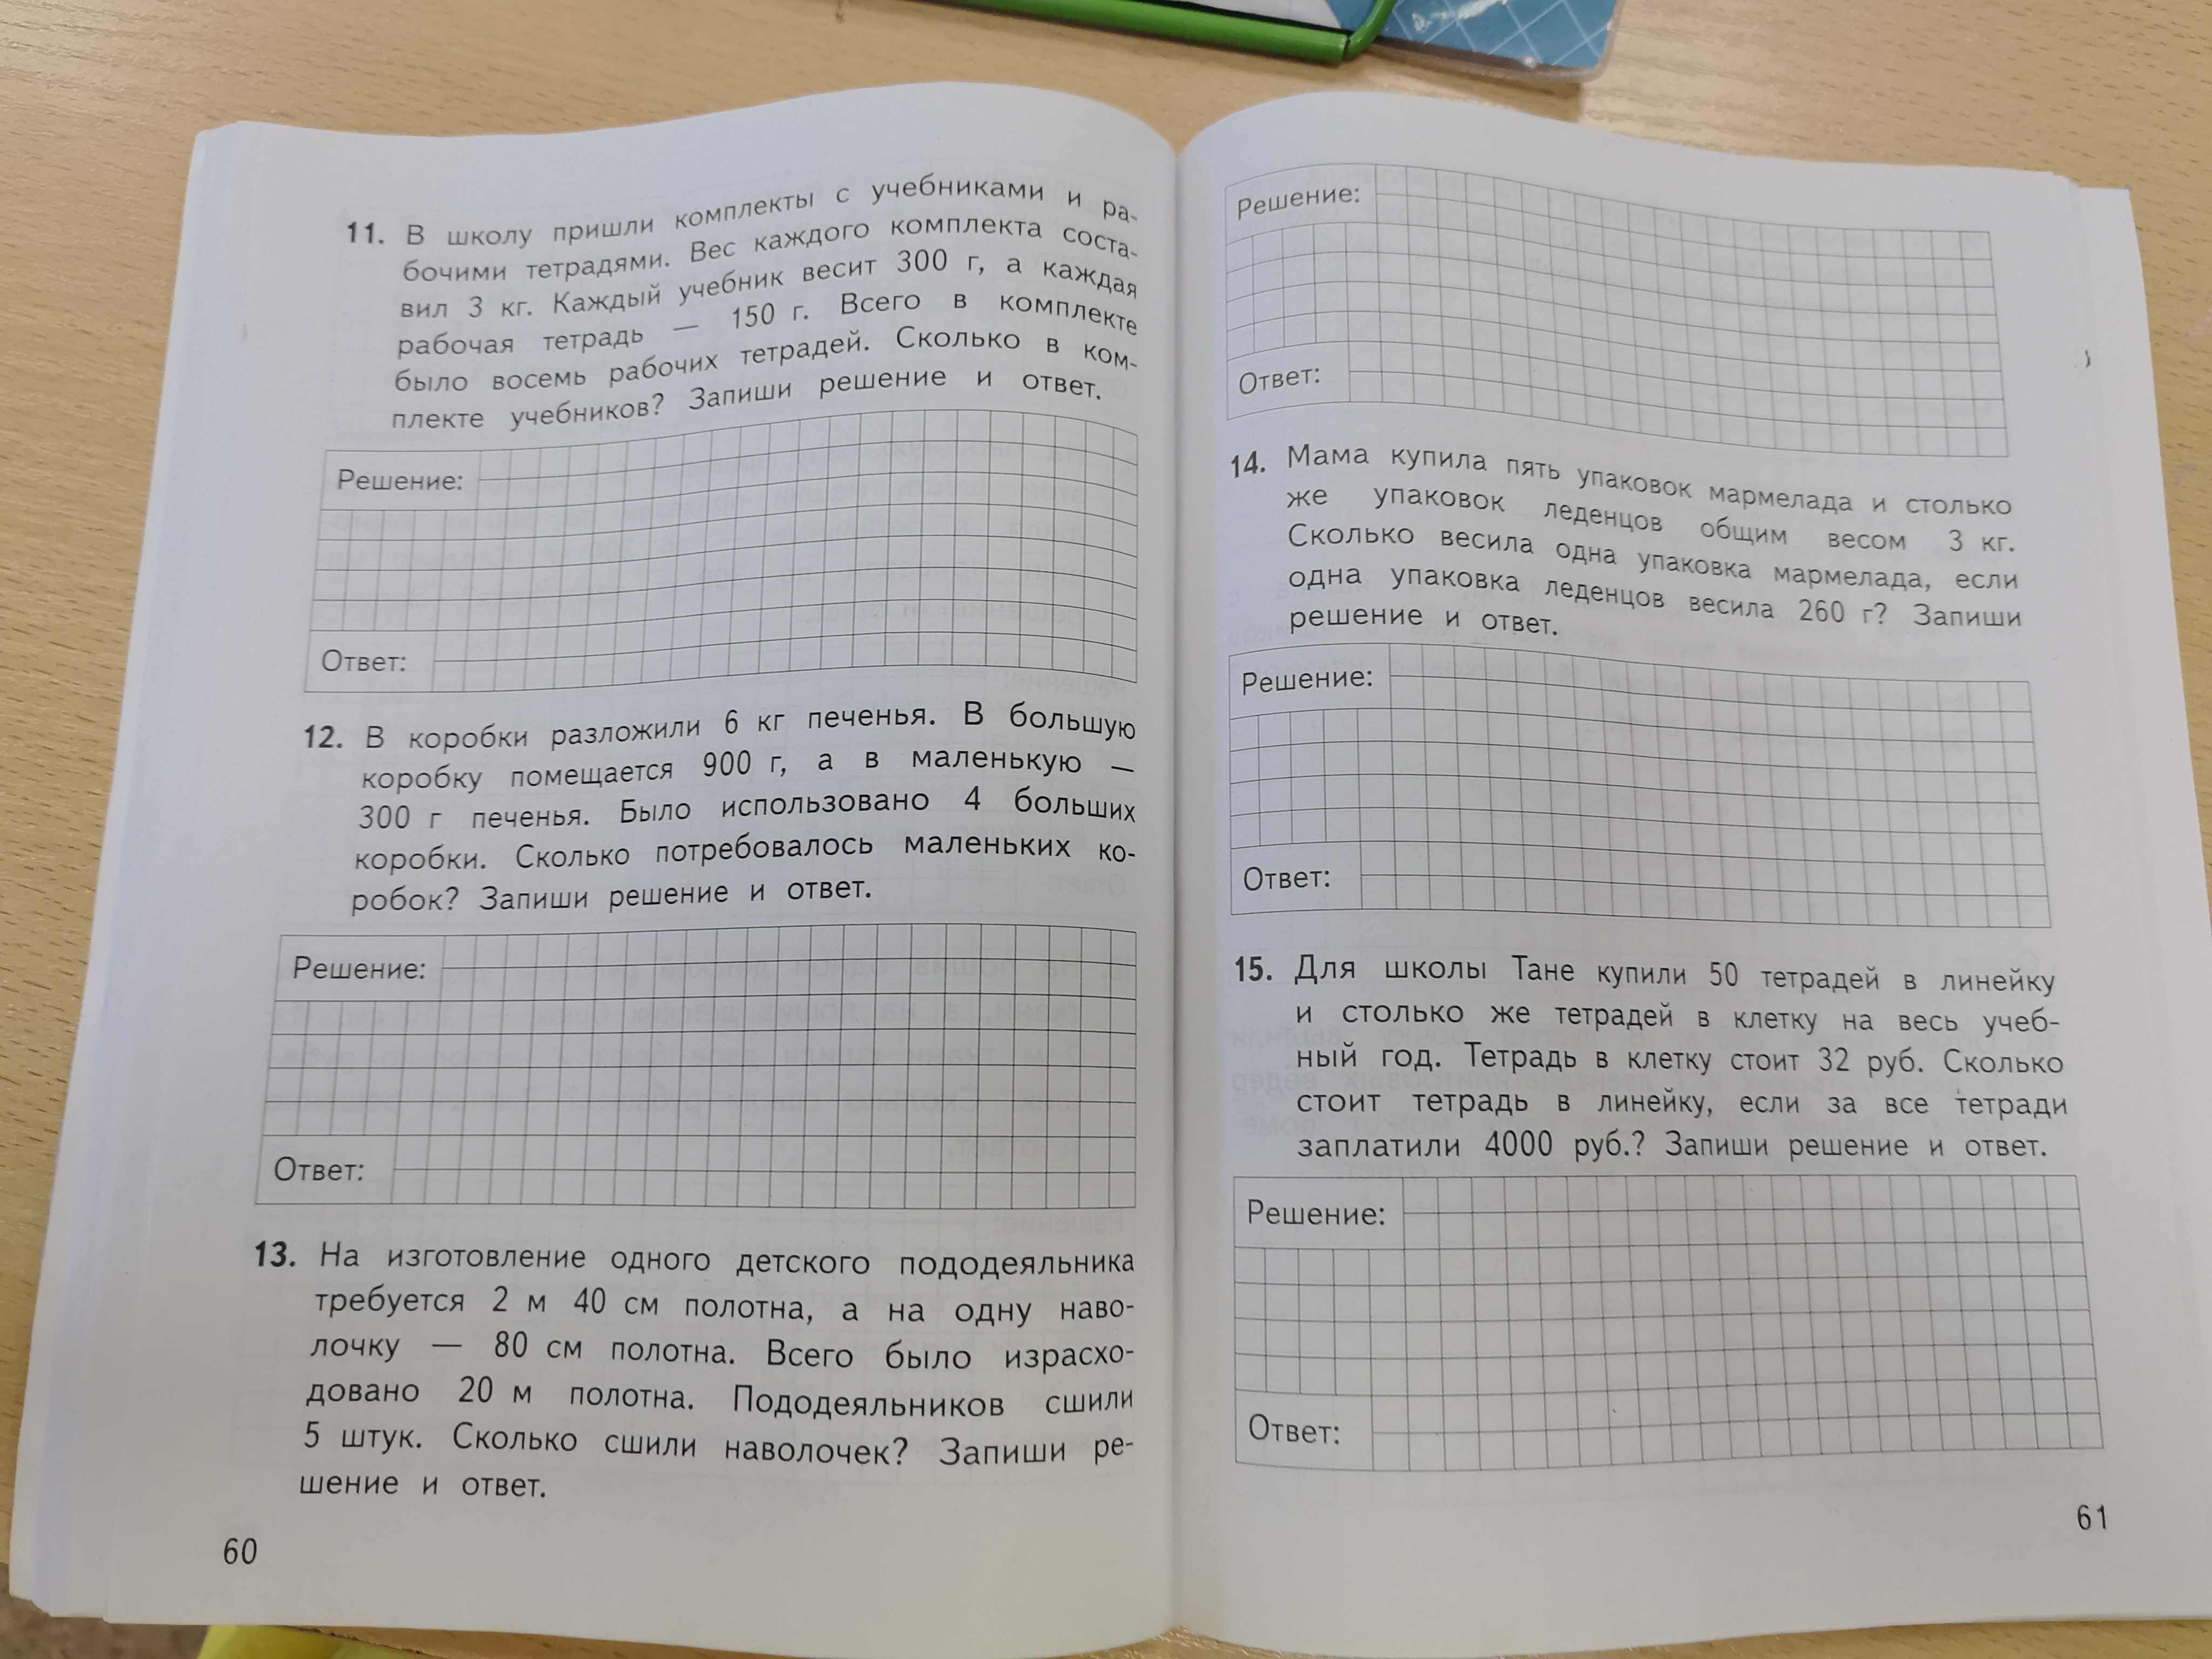 11. В школу пришли комплекты с учебниками и ра-
бочими тетрадями. Вес каждого комплекта соста-
вил 3 кг. Каждый учебник весит 300 г, а каждая
рабочая тетрадь — 150 г. Всего в комплекте
было восемь рабочих тетрадей. Сколько в ком-
плекте учебников? Запиши решение и ответ.
Решение:
Ответ:
12. В коробки разложили 6 кг печенья. В большую
коробку помещается 900 г, а в маленькую —
300 г печенья. Было использовано 4 больших
коробки. Сколько потребовалось маленьких ко-
робок? Запиши решение и ответ.
Решение:
Ответ:
13. На изготовление одного детского пододеяльника
требуется 2 м 40 см полотна, а на одну наво-
лочку — 80 см полотна. Всего было израсхо-
довано 20 м полотна. Пододеяльников сшили
5 штук. Сколько сшили наволочек? Запиши ре-
шение и ответ.
60
Решение:
Ответ:
14. Мама купила пять упаковок мармелада и столько
же упаковок леденцов общим весом 3 кг.
Сколько весила одна упаковка мармелада, если
одна упаковка леденцов весила 260 г? Запиши
решение и ответ.
Решение:
Ответ:
15. Для школы Тане купили 50 тетрадей в линейку
и столько же тетрадей в клетку на весь учеб-
ный год. Тетрадь в клетку стоит 32 руб. Сколько
стоит тетрадь в линейку, если за все тетради
заплатили 4000 руб.? Запиши решение и ответ.
Решение:
Ответ:
61